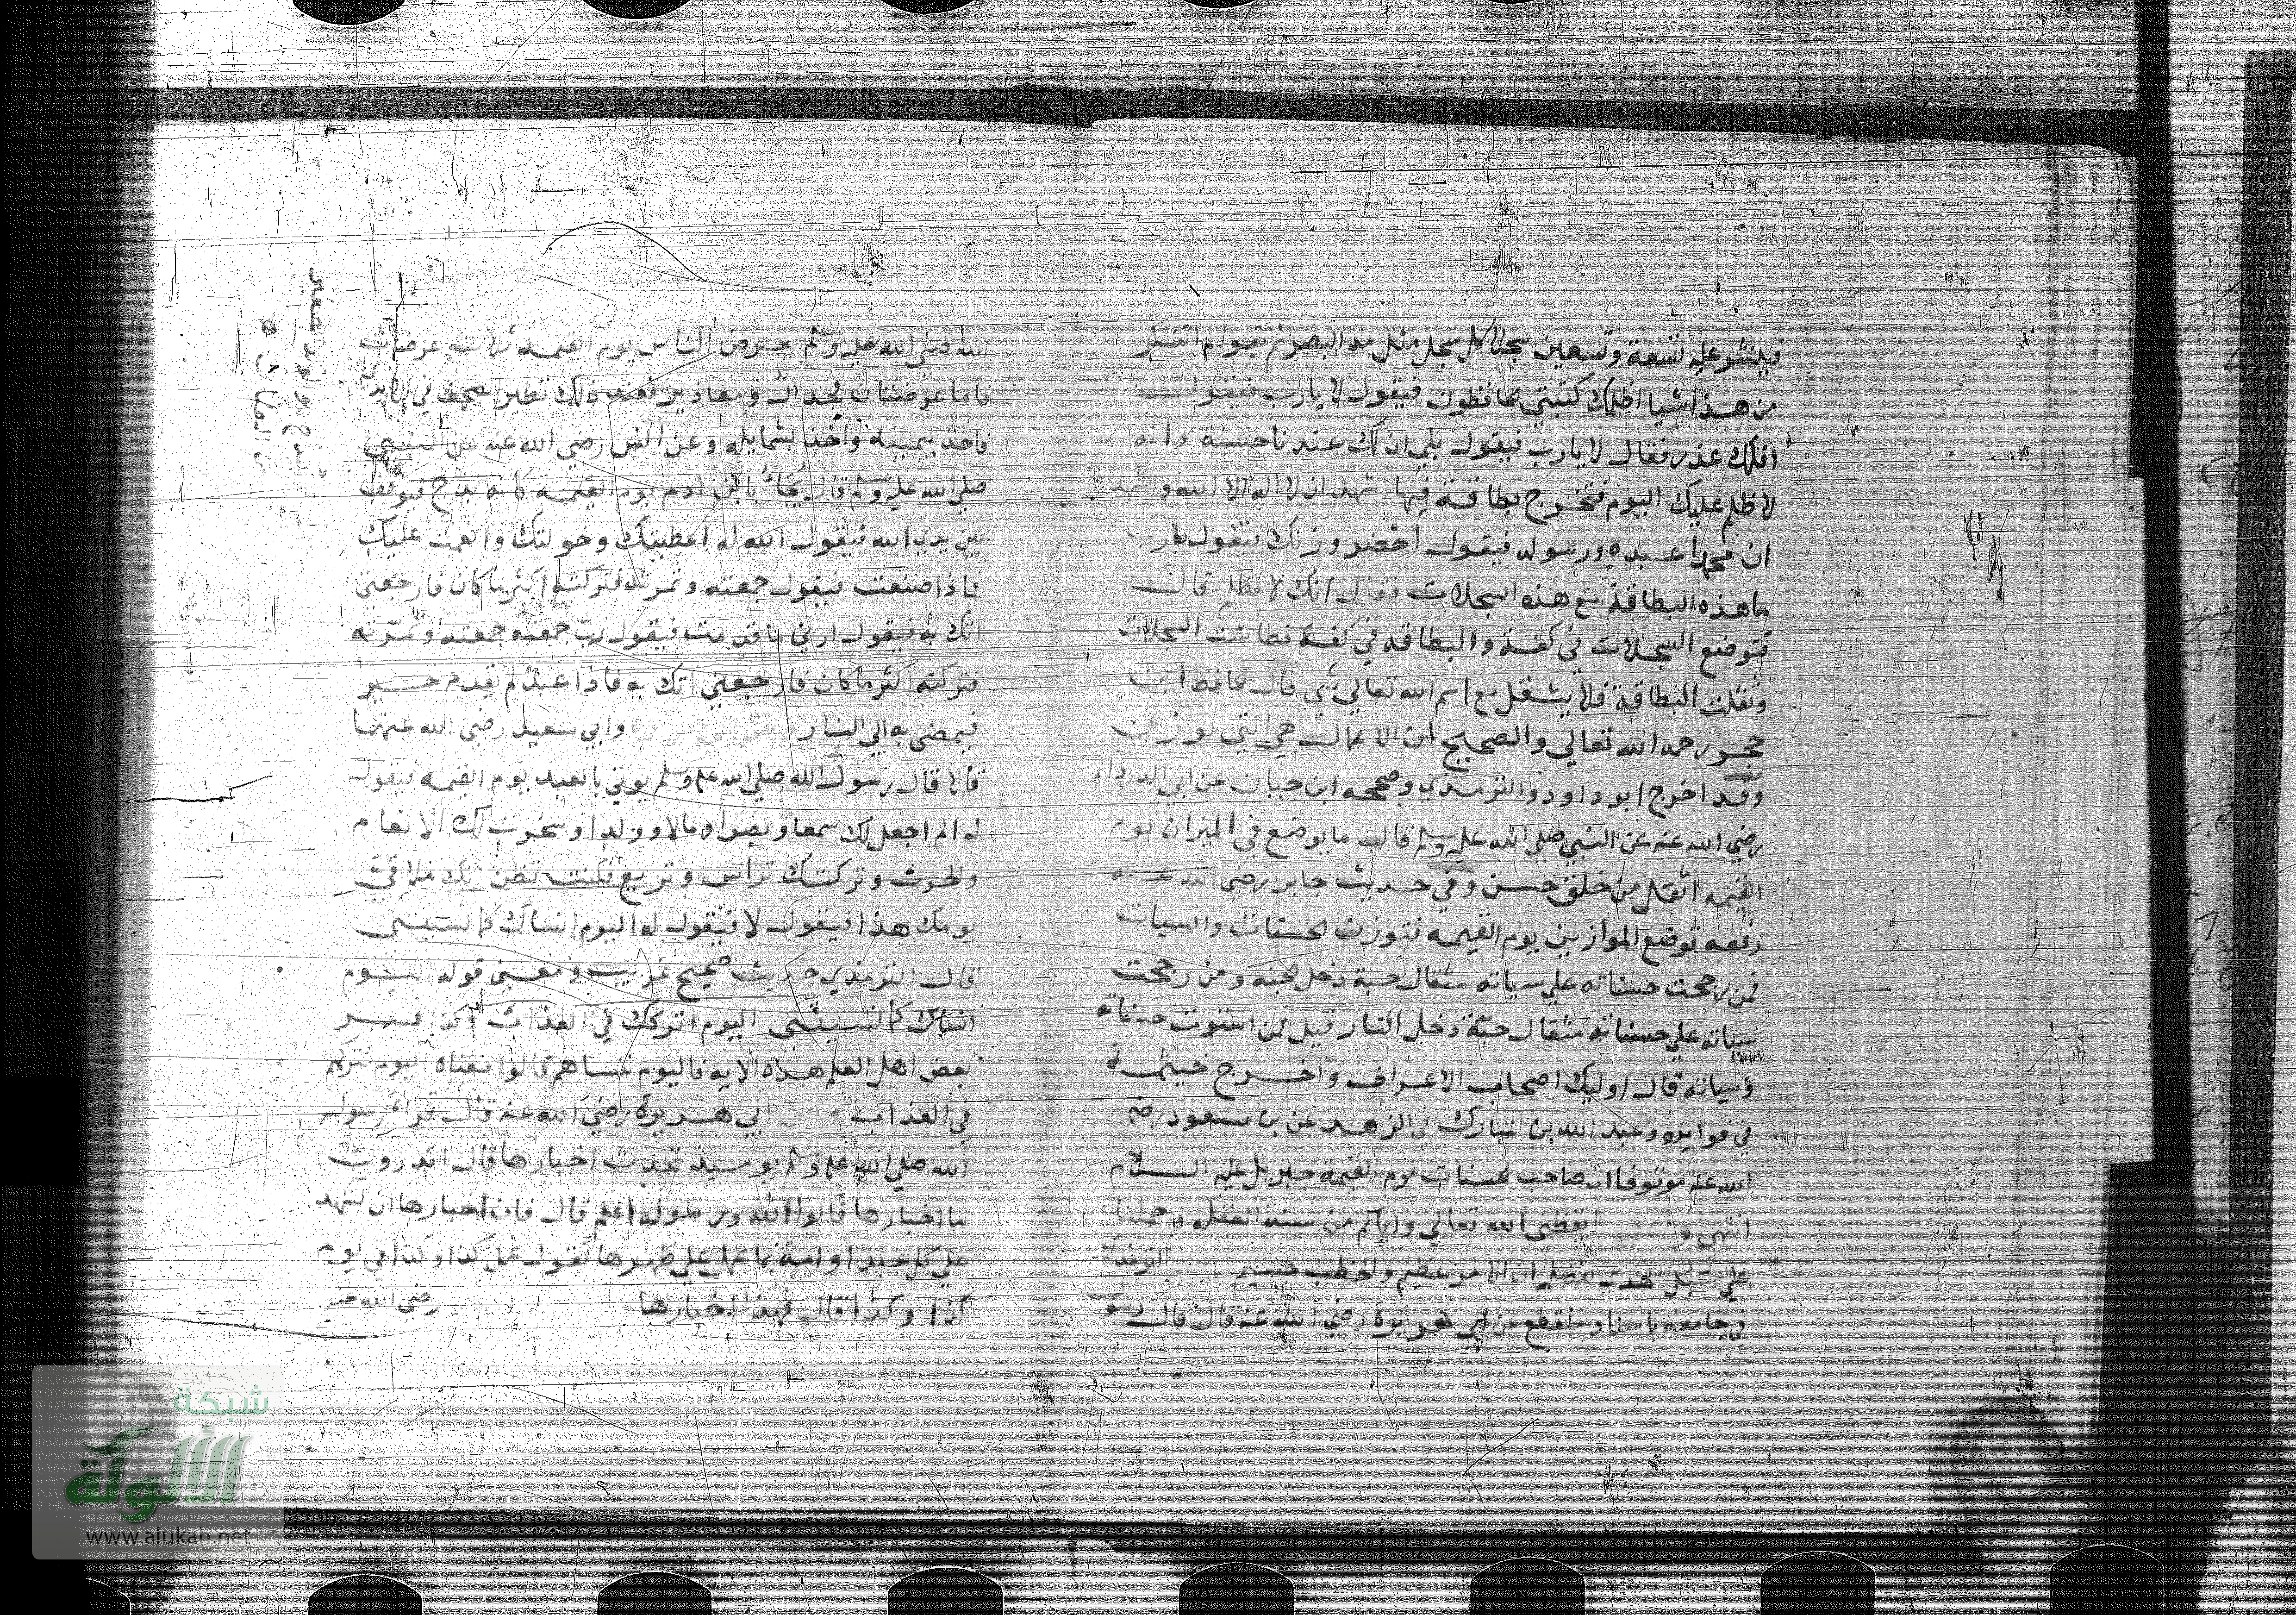 فينشر عليه تسعة وتسعين سجلا كل سجل مثل مد البصر ثم يقول اتنكر
من هذا شيا اظلمك كتبتي الحافظون فيقول لا يارب فيقول
افلك عذر فقال لا يارب فيقول بلي ان لك عندنا حسنة وانه
لا ظلم عليك اليوم فتخرج بطاقة فيها اشهد ان لا اله الا الله واشهد
ان محمدا عبده ورسوله فيقول احضر وزنك فيقول يارب
ما هذه البطاقة مع هذه السجلات فقال انك لا تظلم قال
فتوضع السجلات في كفة والبطاقه في كفة فطاشت السجلات
وثقلت البطاقة فلا يثقل مع اسم الله تعالي شي قال الحافظ ابن
حجر رحمه الله تعالي والصحيح ان الاعمال هي التي توزن
وقد اخرج ابو داود والترمذي وصححه ابن حبان عن ابي الدرداء
رضي الله عنه عن النبي صلي الله عليه وسلم قال ما يوضع في الميزان يوم
القيمه اثقل من خلق حسن وفي حديث جابر رضي الله عنه
رفعه توضع الموازين يوم القيمه فتوزن الحسنات والسيات
فمن رجحت حسناته علي سياته مثقال حبة دخل الجنه ومن رجحت
سياته علي حسناته مثقال حبة دخل النار قيل فمن استوت حسناته
وسياته قال اوليك اصحاب الاعراف واخرج خيثمة
في فوايده وعبد الله بن المبارك في الزهد عن بن مسعود رضي
الله عنه موقوفا ان صاحب الحسنات يوم القيمة جبريل عليه السلام
انتهي و ايقظني الله تعالي واياكم من سنة الغفله وحملنا
علي سبل الهدي بفضله ان الامر عظيم والخطب جسيم الترمذي
في جامعه باسناد منقطع عن ابي هريرة رضي الله عنه قال قال رسول
الله صلي الله عليه وسلم يعرض الناس يوم القيمه ثلاث عرضات
فاما عرضتان فجدال ومعاذير فعند ذلك تطير الصحف في الايدي
فاخذ بيمينه واخذ بشمايله وعن انس رضي الله عنه عن النبي
صلي الله عليه وسلم قال يجاء بابن ادم يوم القيمه كانه بذج فيوقف
بين يدي الله فيقول الله له اعطيتك وخولتك وانعمت عليك
فماذا صنعت فيقول جمعته وثمرته فتركته اكثر ما كان فارجعني
اتك به فيقول ارني ما قدمت فيقول رب جمعته وثمرته
فتركته اكثر ما كان فارجعني اتك به فاذا عبد لم يقدم خيرا
فيمضي به الي النار وابي سعيد رضي الله عنهما
قالا قال رسول الله صلي الله عليه وسلم يوتي بالعبد يوم القيمه فيقول
له الم اجعل لك سمعا وبصرا ومالا وولدا وسخرت لك الانعام
والحرث وتركتك تراس وتربع فكنت تظن انك ملاقي
يومك هذا فيقول لا فيقول له اليوم انساك كما نسيتني
قال الترمذي حديث صحيح غريب ومعني قوله اليوم
انساك كما نسيتني اليوم اتركك في العذاب
بعض اهل العلم هذه الايه فاليوم ننساهم قالوا معناه اليوم نتركهم
في العذاب ابي هريرة رضي الله عنه قال قرا رسول
الله صلي الله عليه وسلم يوميذ تحدث اخبارها قال اتدرون
ما اخبارها قالوا الله ورسوله اعلم قال فان اخبارها ان تشهد
علي كل عبد او امة بما عمل علي ظهرها تقول عمل كذا وكذا في يوم
كذا وكذا قال فهذا اخبارها رضي الله عنه
شبكة
الألوكة
www.alukah.net